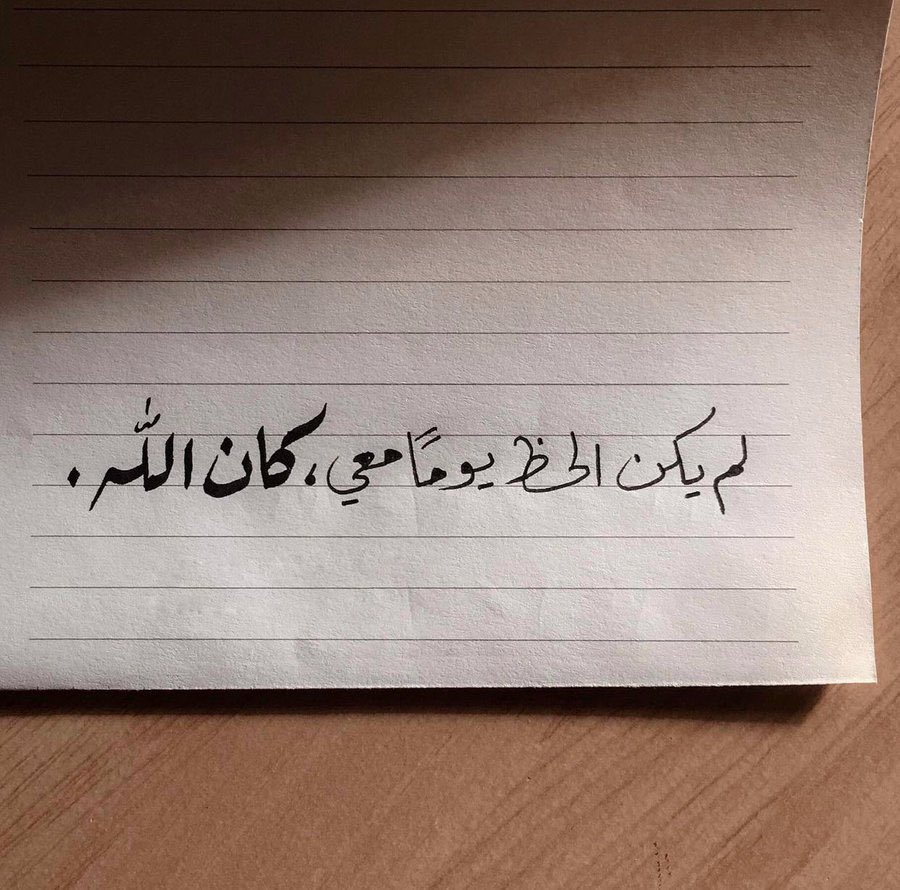 لم يكن الحظ يومًا معي، كان الله.